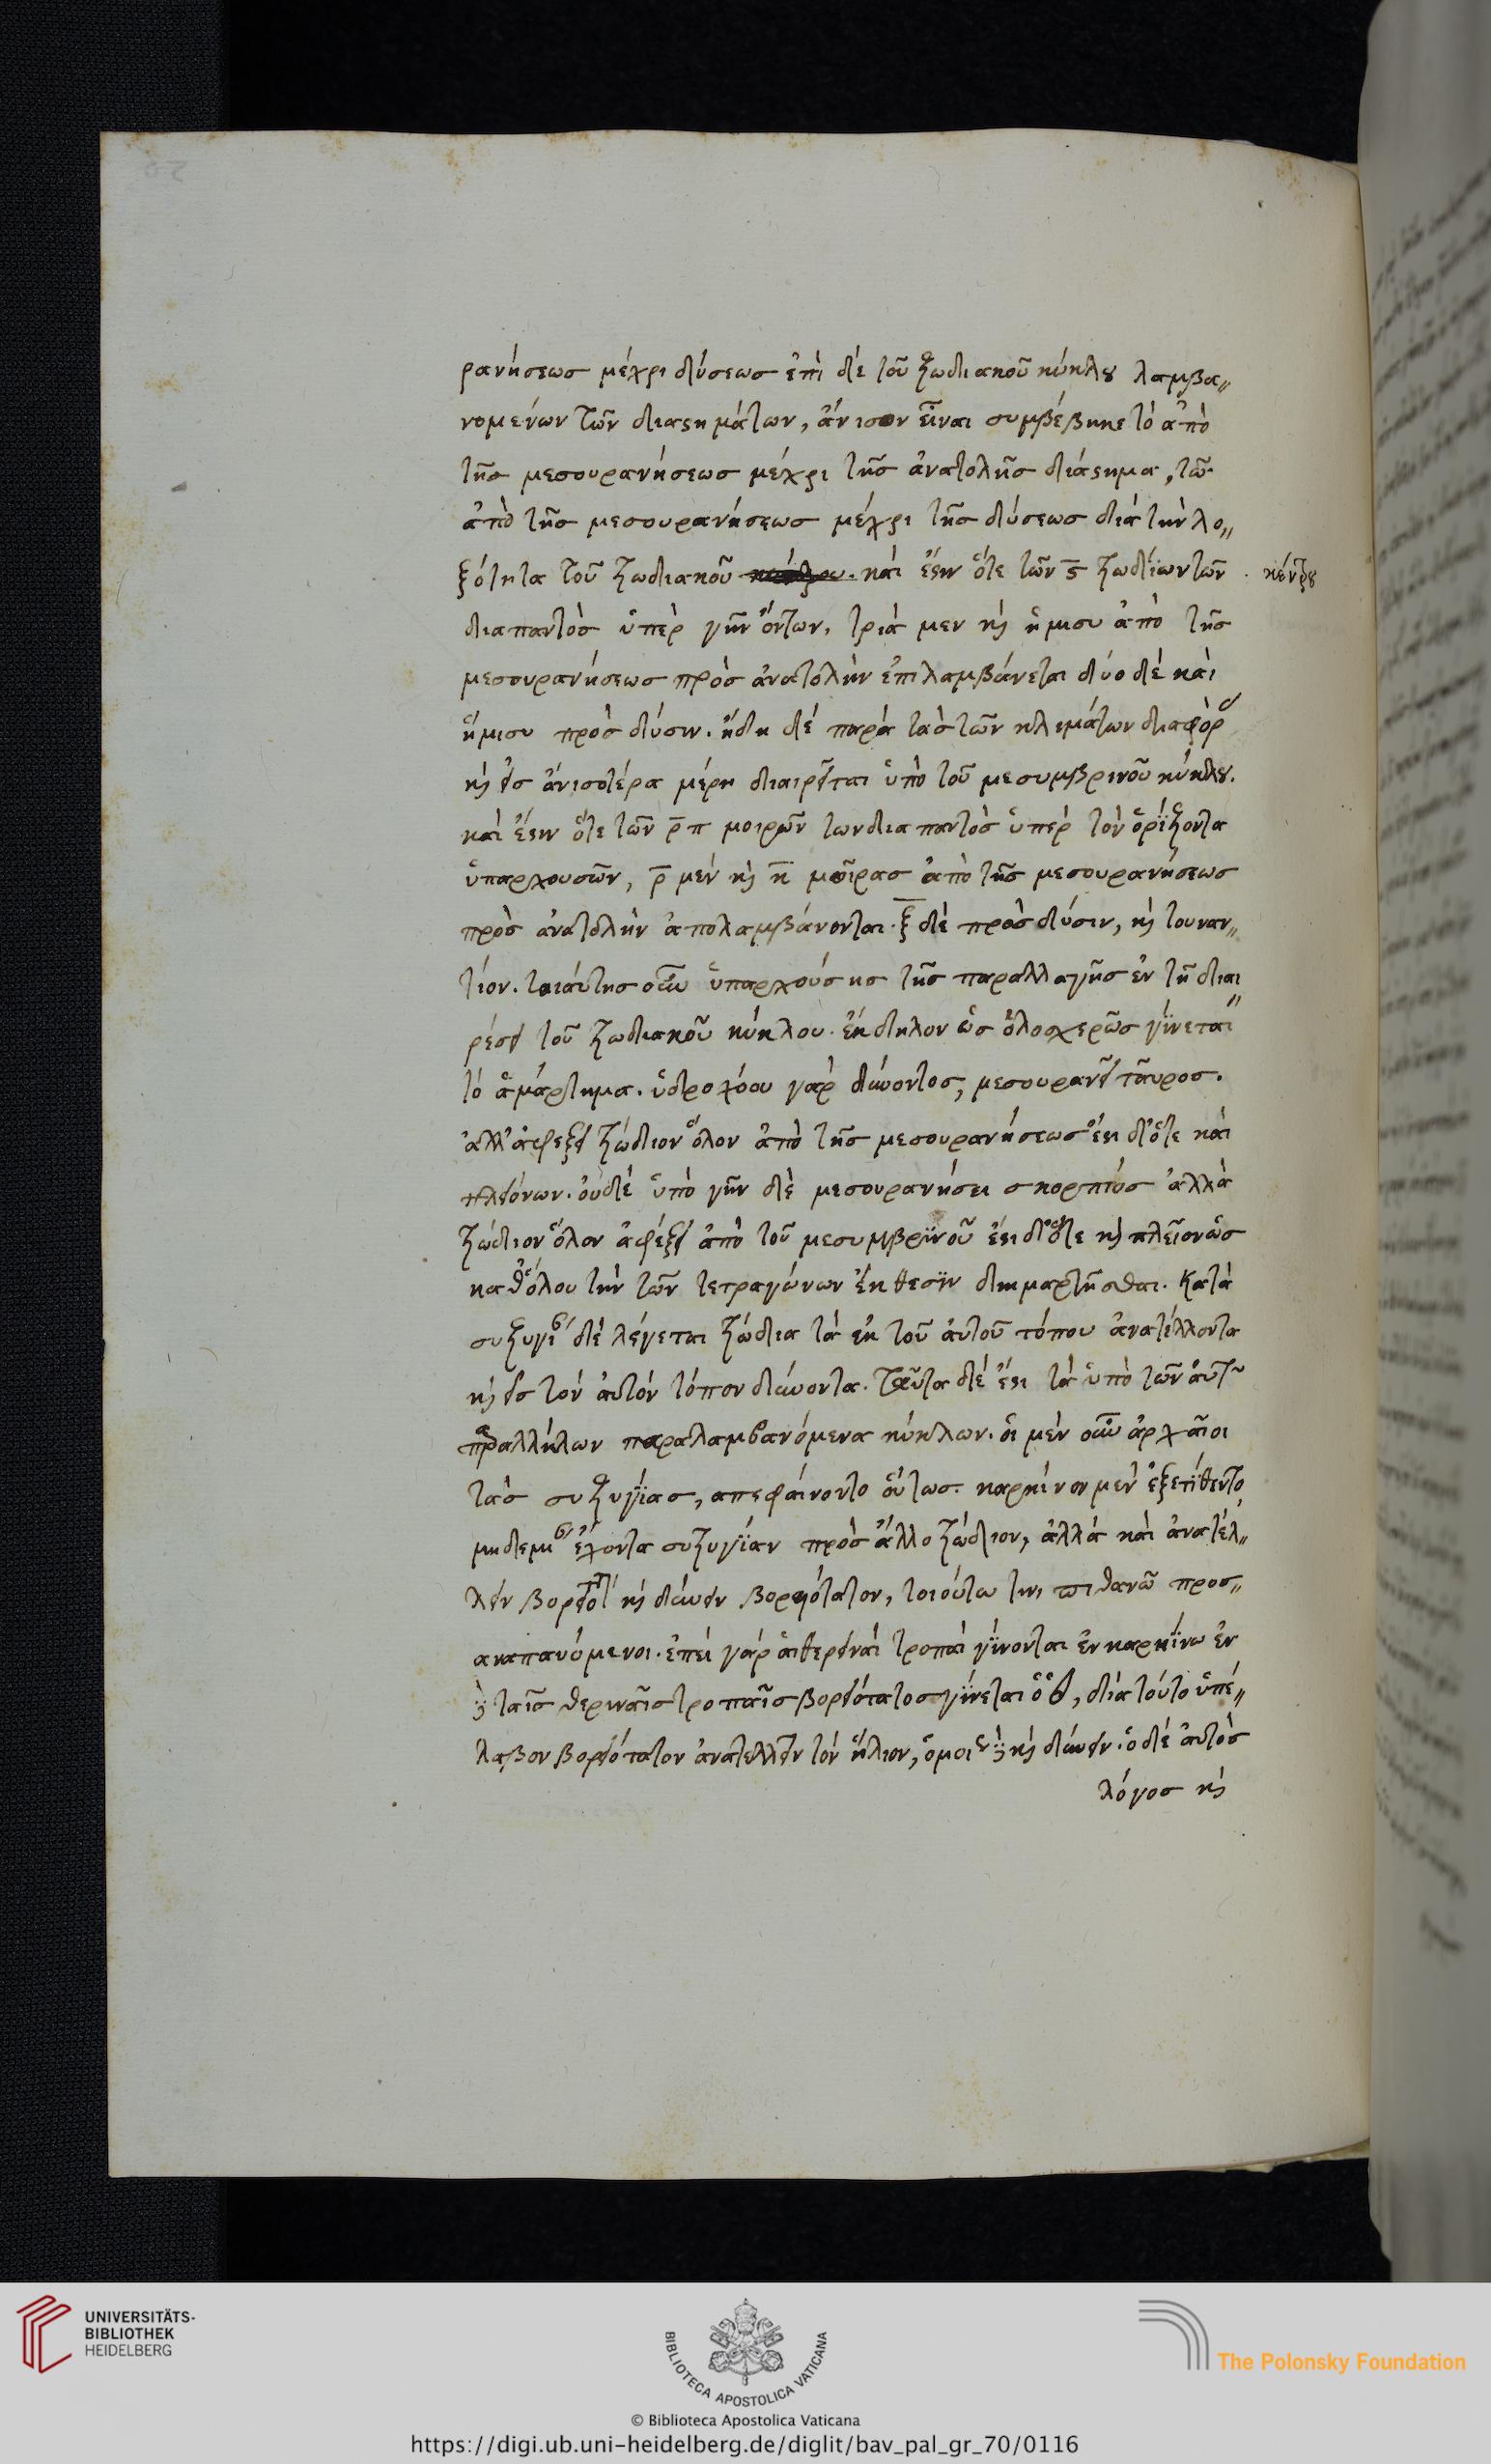 ρανήσεωσ μέχρι δύσεωσ ἐπὶ δὲ τοῦ ζωδιακοῦ κύκλȣ λαμβα„
νομένων τῶν διαϛημάτων, ἄνισον εἶναι συμβέβηκε τὸ ἀπὸ
τῆσ μεσουρανήσεωσ μέχρι τῆσ ἀνατολῆσ διάϛημα, τῶ
ἀπὸ τῆσ μεσουρανήσεωσ μέχρι τῆσ δύσεωσ διὰ τὴν λο„
ξότητα τοῦ ζωδιακοῦ καὶ ἔϛιν ὅτε τῶν ϛ̄ ζωδίων τῶν · κέντρȣ
διαπαντὸσ ὑπὲρ γῆν ὄντων, τρία μεν κὶ ἥμισυ ἀπὸ τῆσ
μεσουρανήσεωσ πρὸσ ἀνατολὴν ἐπιλαμβάνεται δύο δὲ καὶ
ἥμισυ πρὸσ δύσιν. ἤδη δὲ παρὰ τὰσ τῶν κλιμάτων διαφὸρ
κὶ εἰσ ἀνισοτέρα μέρη διαιρεῖται ὑπὸ τοῦ μεσυμβρινοῦ κύκλȣ.
καὶ ἔϛιν ὅτε τῶν ρ̄π μοιρῶν τωνδιαπαντὸσ ὑπὲρ τὸν ὁρίζοντα
ὑπαρχουσῶν, ρ̄ μέν κὶ κ̄ μοῖρασ ἀπὸ τῆσ μεσουρανήσεωσ
πρὸσ ἀνατολὴν ἀπολαμβάνονται. ξ̄ δὲ πρὸσ δύσιν, κὶ τουναν„
τίον. τοιάυτησ οὖν ὑπαρχούσησ τῆσ παραλλαγῆσ ἐν τῆ διαι„
ρέσει τοῦ ζωδιακοῦ κύκλου. ἔκδηλον ὡσ ὁλοσχερῶσ γίνεται
τὸ ἁμάρτημα. ὑδροχόου γὰρ δύνοντοσ, μεσουρανεῖ ταῦροσ.
ἀλλ' ἀφεξει ζώδιον ὅλον ἀπὸ τῆσ μεσουρανήσεωσ ἔϛι δ' ὅτε καὶ
πλειόνων. οὐδὲ ὑπὸ γῆν δὲ μεσουρανήσει σκορπιόσ ἀλλὰ
ζώδιον ὅλον ἀφέξει ἀπὸ τοῦ μεσυμβρινοῦ ἔϛι δ' ὅτε κὶ πλεῖον ὡσ
καθ' ὅλου τὴν τῶν τετραγώνων ἔκθεσιν διημαρτῆσθαι. Κατὰ
συζυγί δὲ λέγεται ζώδια τὰ ἐκ τοῦ ἀυτοῦ τόπου ἀνατέλλοντα
κὶ εἰσ τὸν ἀυτὸν τόπον δύνοντα. Ταῦτα δέ ἐϛι τὰ ὑπὸ τῶν ἀυτ
παραλλήλων παραλαμβανόμενα κύκλων. ὁι μὲν οὖν ἀρχᾶιοι
τὰσ συζυγίασ, απεφάινοντο ὅυτωσ. καρκίνον μὲν ἐξετίθεντο
μηδεμί ἔχοντα συζυγίαν πρὸσ ἄλλο ζώδιον, ἀλλὰ καὶ ἀνατέλ„
λειν βορειότ κὶ δύνειν βορειότατον, τοιούτω τινι πιθανῶ προσ„
αναπαυόμενοι. ἐπεὶ γὰρ ἁιθεριναὶ τροπαὶ γίνονται ἐν καρκίνω ἐν
ταῖσ θεριναῖσ τροπαῖσ βορειότατοσ γίνεται ὁ , διὰ τοῦτο ὑπέ„
λαβον βορειότατον ἀνατελλειν τὸν ἥλιον, ὁμοι κὶ δύνειν. ὁ δὲ ἀυτὸσ
λόγοσ κὶ
UNIVERSITÄTS-
BIBLIOTHEK
HEIDELBERG
BIBLIOTECA APOSTOLICA VATICANA
The Polonsky Foundation
© Biblioteca Apostolica Vaticana
https://digi.ub.uni-heidelberg.de/diglit/bav_pal_gr_70/0116